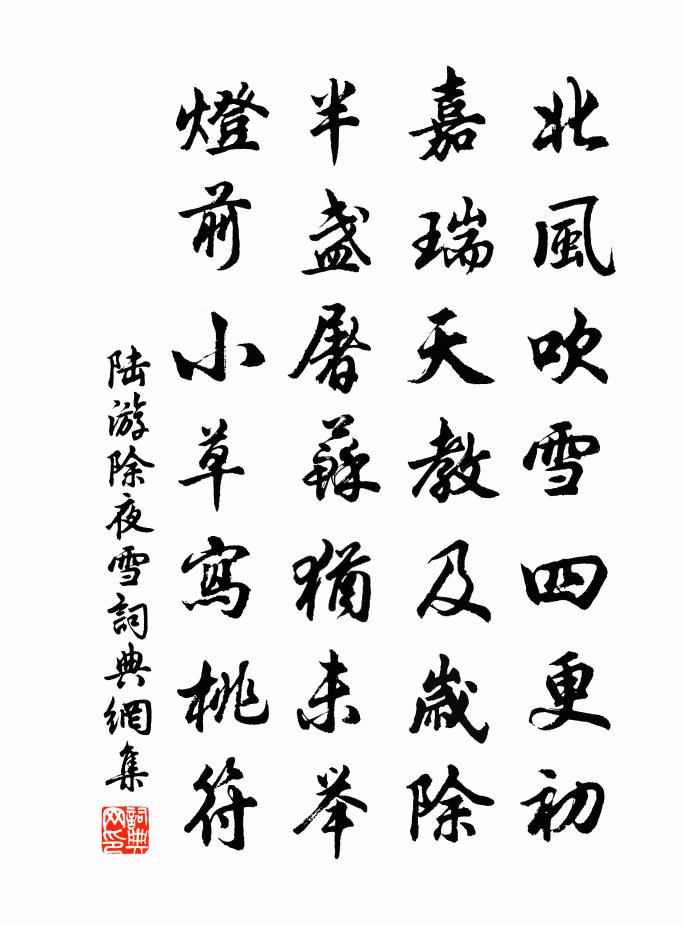 北風吹雪四更初
嘉瑞天教及歲除
半盞屠蘇猶未举
燈前小草寫桃符
陆游除夜雪詞典網集
詞典网印